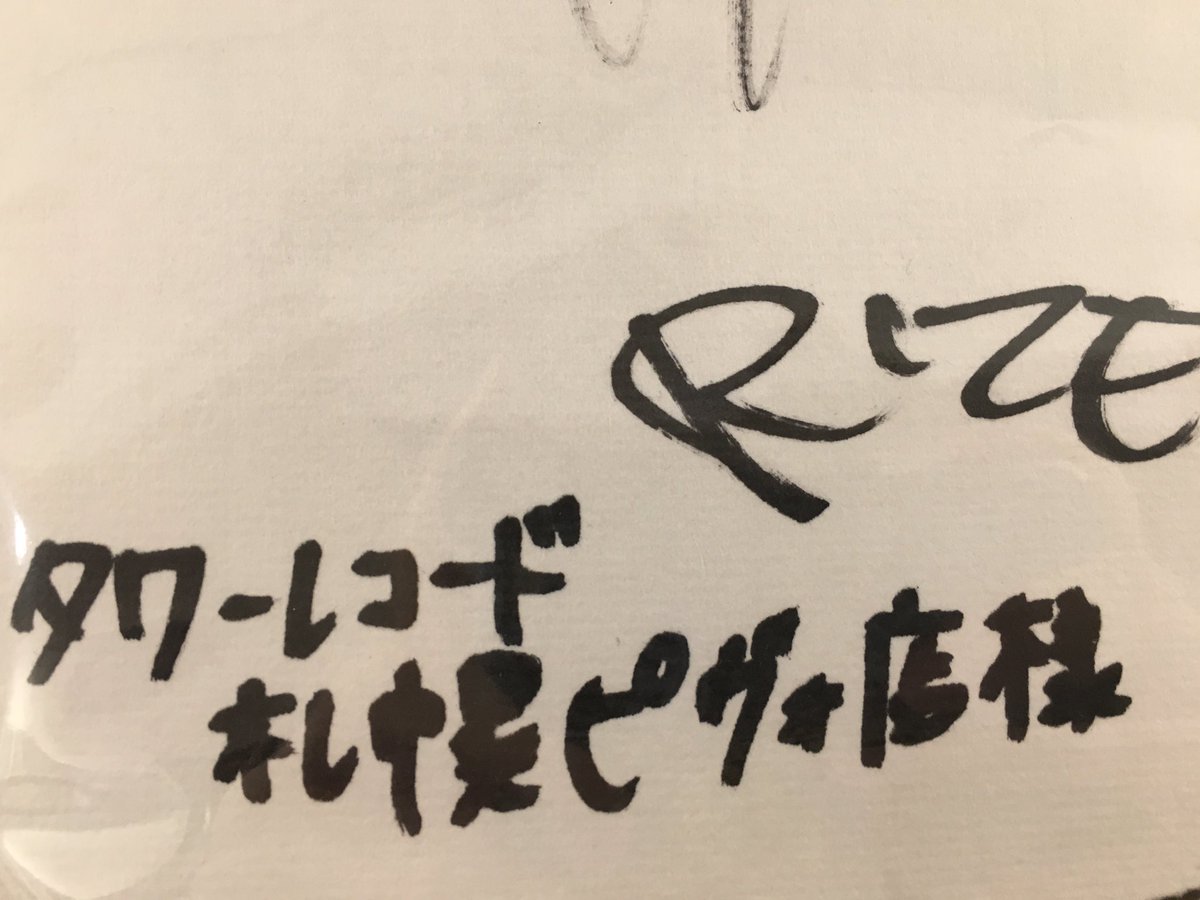 RIZE
タワーレコード
札幌ピヴォ店様